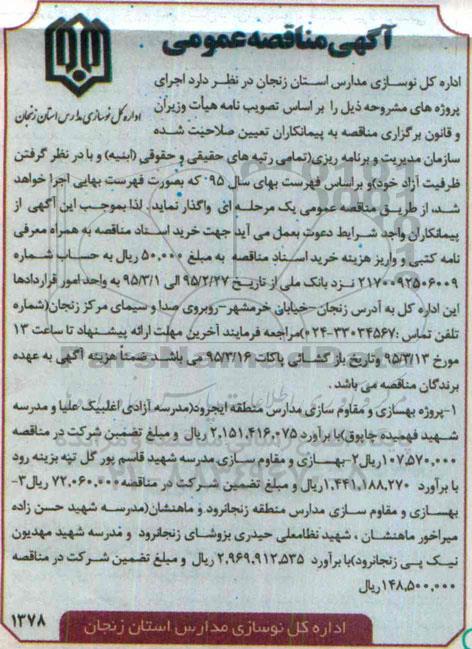 آگهی مناقصه عمومی
اداره کل نوسازی مدارس استان زنجان
اداره کل نوسازی مدارس استان زنجان در نظر دارد اجرای
پروژه های مشروحه ذیل را بر اساس تصویب نامه هیأت وزیران
و قانون برگزاری مناقصه به پیمانکاران تعیین صلاحیت شده
سازمان مدیریت و برنامه ریزی(تمامی رتبه های حقیقی و حقوقی (ابنیه) و با در نظر گرفتن
ظرفیت آزاد خود)و براساس فهرست بهای سال ۹۵ که بصورت فهرست بهایی اجرا خواهد
شد، از طریق مناقصه عمومی یک مرحله ای واگذار نماید. لذا بموجب این آگهی از
پیمانکاران واجد شرایط دعوت بعمل می آید جهت خرید اسناد مناقصه به همراه معرفی
نامه کتبی و واریز هزینه خرید اسناد مناقصه به مبلغ ۵۰.۰۰۰ ریال به حساب شماره
۲۱۷۰۰۹۲۵۰۶۰۰۹ نزد بانک ملی از تاریخ ۹۵/۲/۲۷ الی ۹۵/۳/۱ به واحد امور قراردادها
این اداره کل به آدرس زنجان-خیابان خرمشهر-روبروی صدا و سیمای مرکز زنجان(شماره
تلفن تماس :۳۳۰۳۴۵۶۷-۰۲۴)مراجعه فرمایند آخرین مهلت ارائه پیشنهاد تا ساعت ۱۳
مورخ ۹۵/۳/۱۳ وتاریخ باز گشائی پاکات ۹۵/۳/۱۶ می باشد ضمناً هزینه آگهی به عهده
برندگان مناقصه می باشد.
۱-پروژه بهسازی و مقاوم سازی مدارس منطقه ایجرود(مدرسه آزادی اغلبیک علیا و مدرسه
شهید فهمیده چاپوق)با برآورد ۲.۱۵۱.۴۱۶.۰۷۵ ریال و مبلغ تضمین شرکت در مناقصه
۱۰۷,۵۷۰,۰۰۰ریال۲-بهسازی و مقاوم سازی مدرسه شهید قاسم پور گل تپه بزینه رود
با برآورد ۱.۴۴۱.۱۸۸.۲۷۰ریال و مبلغ تضمین شرکت در مناقصه۷۲.۰۶۰.۰۰۰ ریال۳-
بهسازی و مقاوم سازی مدارس منطقه زنجانرود و ماهنشان(مدرسه شهید حسن زاده
میراخور ماهنشان ، شهید نظامعلی حیدری بزوشای زنجانرود و مدرسه شهید مهدیون
نیک پی زنجانرود)با برآورد ۲.۹۶۹.۹۱۲.۵۳۵ ریال و مبلغ تضمین شرکت در مناقصه
۱۴۸.۵۰۰.۰۰۰ریال
اداره کل نوسازی مدارس استان زنجان
۱۳۷۸